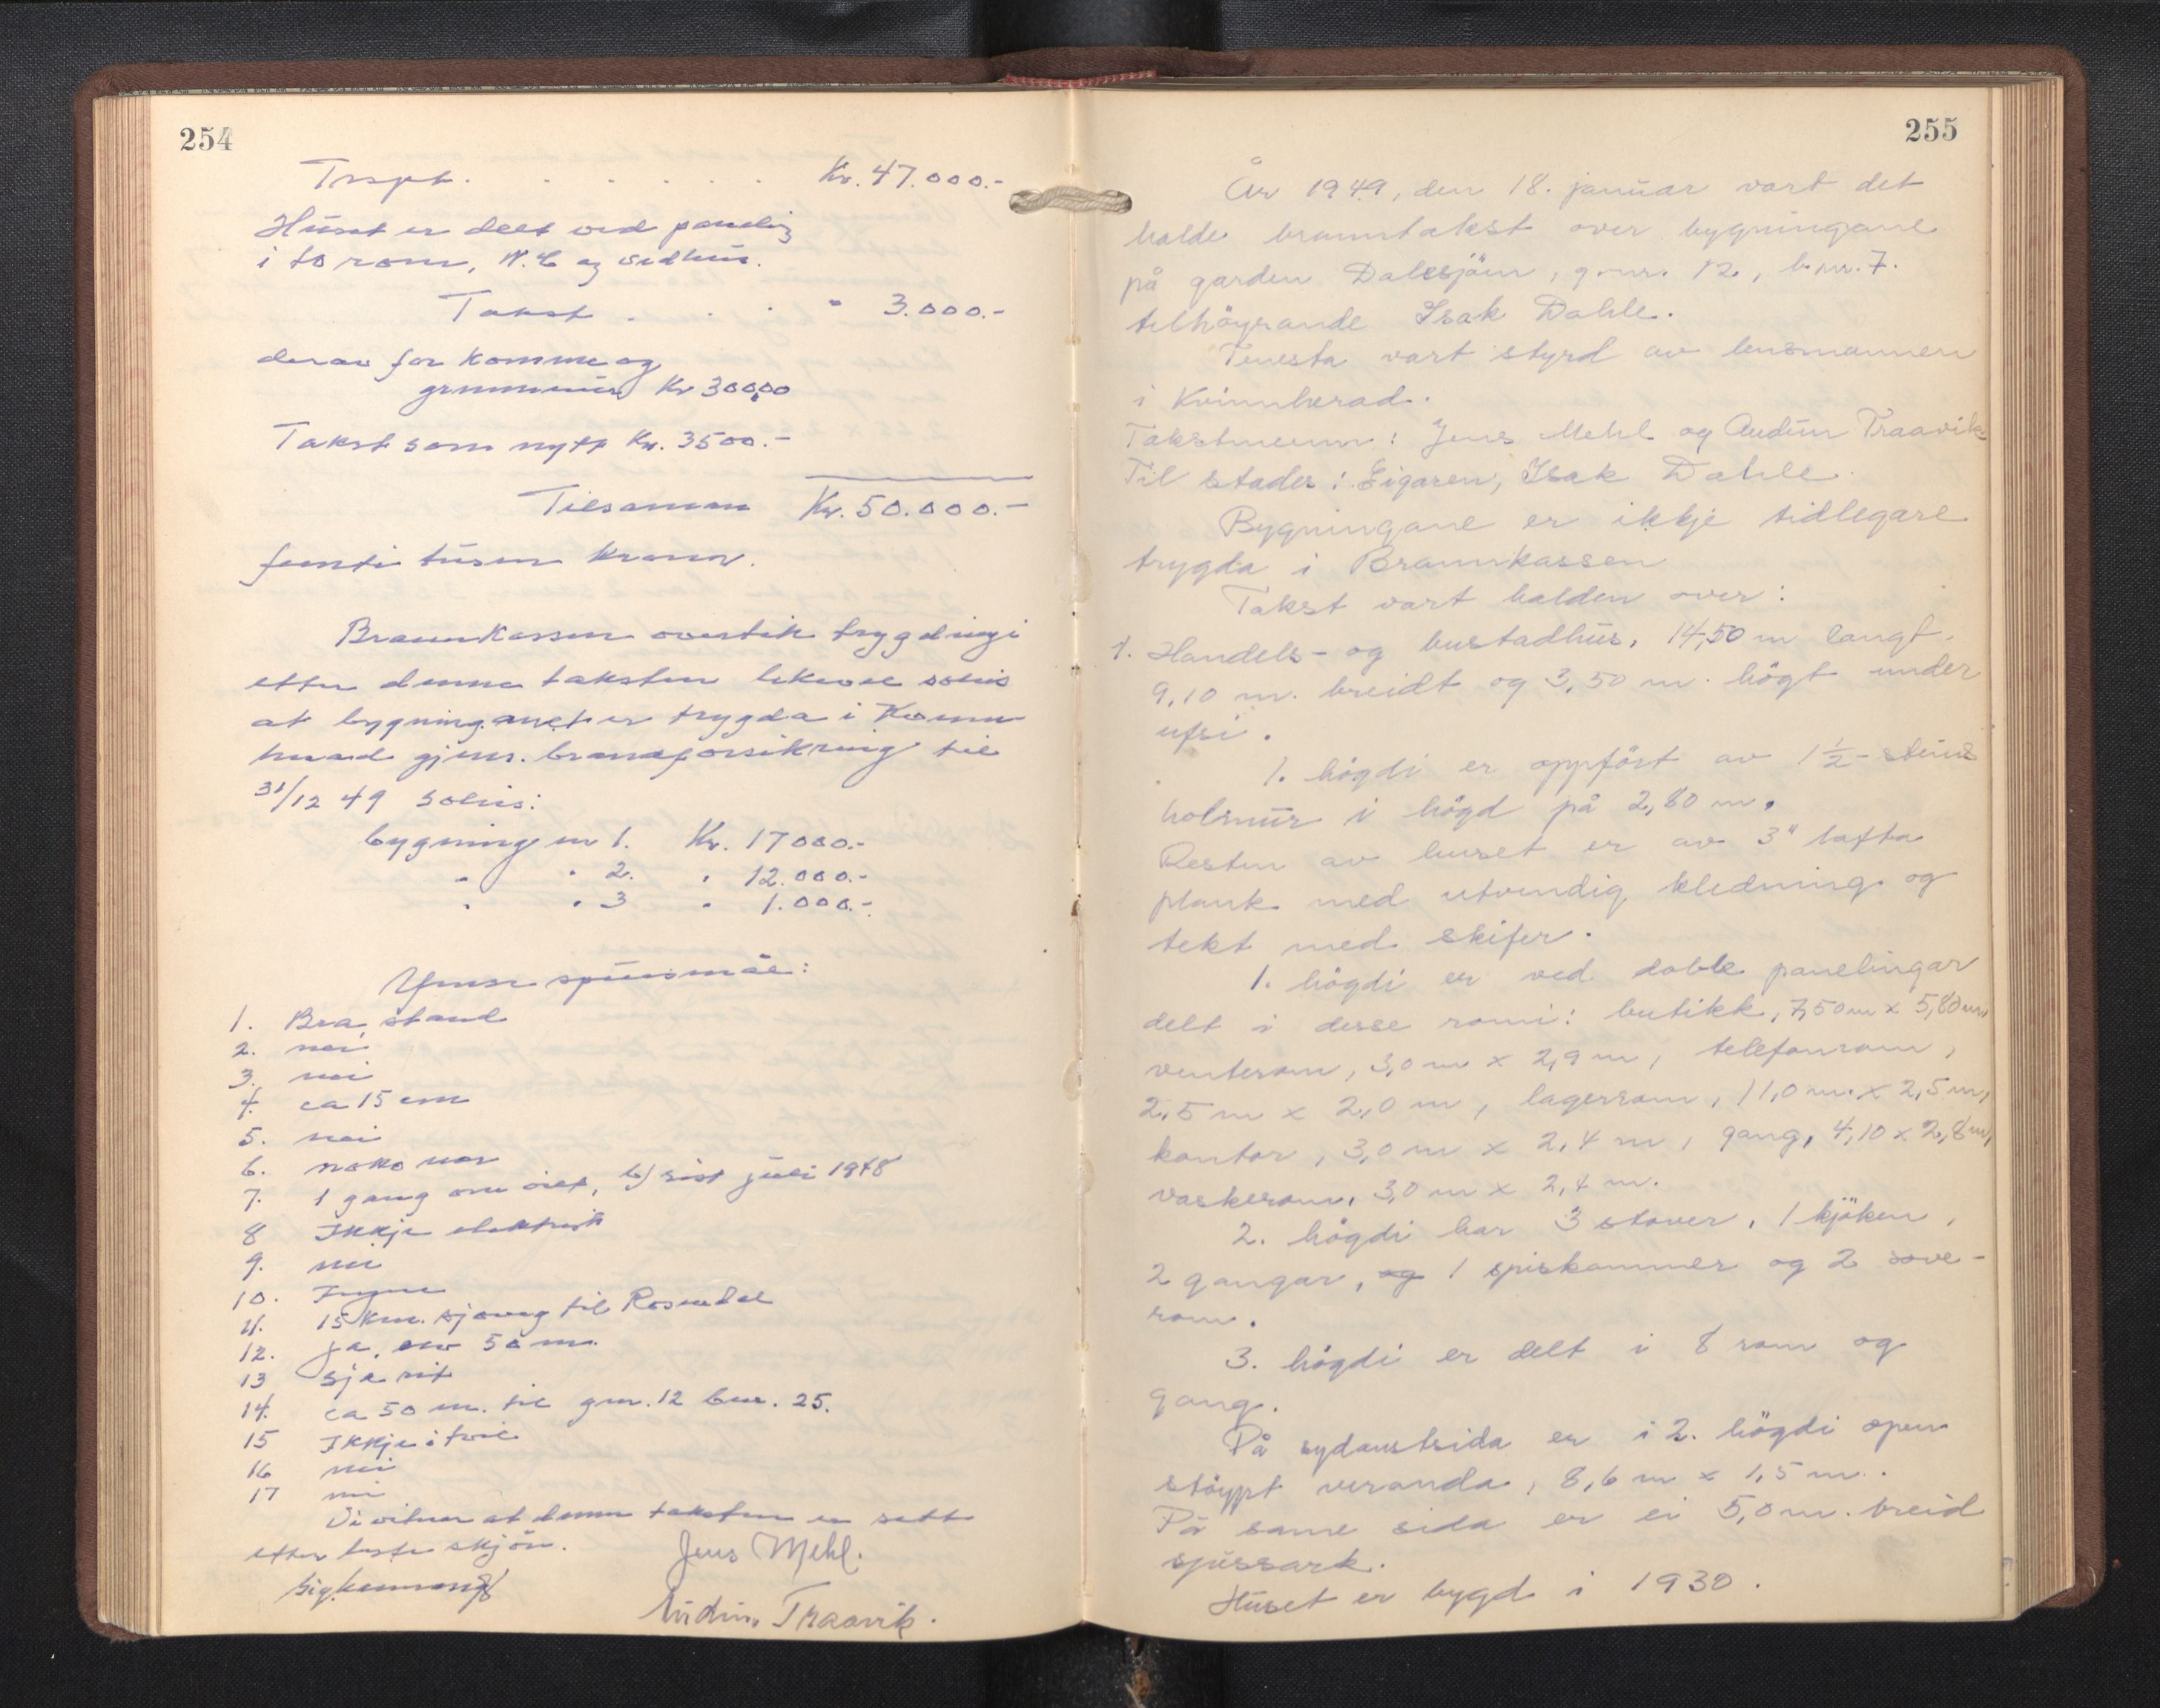 254
Trspt. . . . . . Kr. 47.000.-
Huset er delt ved paneling
i to rom, W.C og vedhus.
Takst . . . " 3.000.-
derav for komme og
grunnmur Kr 300,00
Takst som nytt Kr. 3500.-
Tilsaman Kr. 50.000.-
femti tusen kroner.
Brannkassen overtek trygding i
etter denne taksten likevel solis
at bygningane er trygda i Kvinn-
herad gjens. brandforsikring til
31/12 49 solis:
bygning nr 1. Kr. 17000.-
" " 2. " 12.000.-
" " 3 " 1.000.-
Ymse spursmål:
1. Bra stand
2. nei
3. nei
4. ca 15 cm
5. nei
6. noko nær
7. 1 gang om året, b) sist juli 1948
8 Ikkje elektrisk
9. nei
10. Ingen
11. 15 km. sjøveg til Rosendal
12. Ja, om 50 m.
13 Sjå rit
14. ca 50 m. til gnr. 12 bnr. 25.
15 Ikkje i tvil
16 nei
17 nei
Vi vitnar at denne taksten er sett
etter beste skjön.
Jens Mehl.
Audun Traavik.
255
År 1949, den 18. januar vart det
halde branntakst over bygningane
på garden Dalesjöen, g.nr. 12, b.nr. 7.
tilhöyrande Isak Dahle.
Tenesta vart styrd av lensmannen
i Kvinnherad.
Takstmenn: Jens Mehl og Audun Traavik
Til stades: Eigaren, Isak Dahle.
Bygningane er ikkje tidlegare
trygda i Brannkassen
Takst vart halden over:
1. Handels- og bustadhus, 14,50 m langt.
9,10 m. breidt og 3,50 m. högt under
ufsi.
1. högdi er oppfört av 1 1/2-steins
holmur i högd på 2,80 m.
Resten av huset er av 3" lafta
plank med utvendig kledning og
tekt med skifer.
1. högdi er ved doble panelingar
delt i desse romi: butikk, 7,50 m x 5,80 m,
venterom, 3,0 m x 2,9 m, telefonrom,
2,5 m x 2,0 m, lagerrom, 11,0 m. x 2,5 m,
kontor, 3,0 m x 2,4 m, gang, 4,10 x 2,8 m,
vaskerom, 3,0 m x 2,4 m.
2. högdi har 3 stover, 1 kjöken,
2 gangar, og 1 spiskammer og 2 sove-
rom.
3. högdi er delt i 8 rom og
gang.
På sydaustsida er i 2. högdi open
stöypt veranda, 8,6 m x 1,5 m.
På same sida er ei 5,0 m. breid
spissark.
Huset er bygd i 1930.